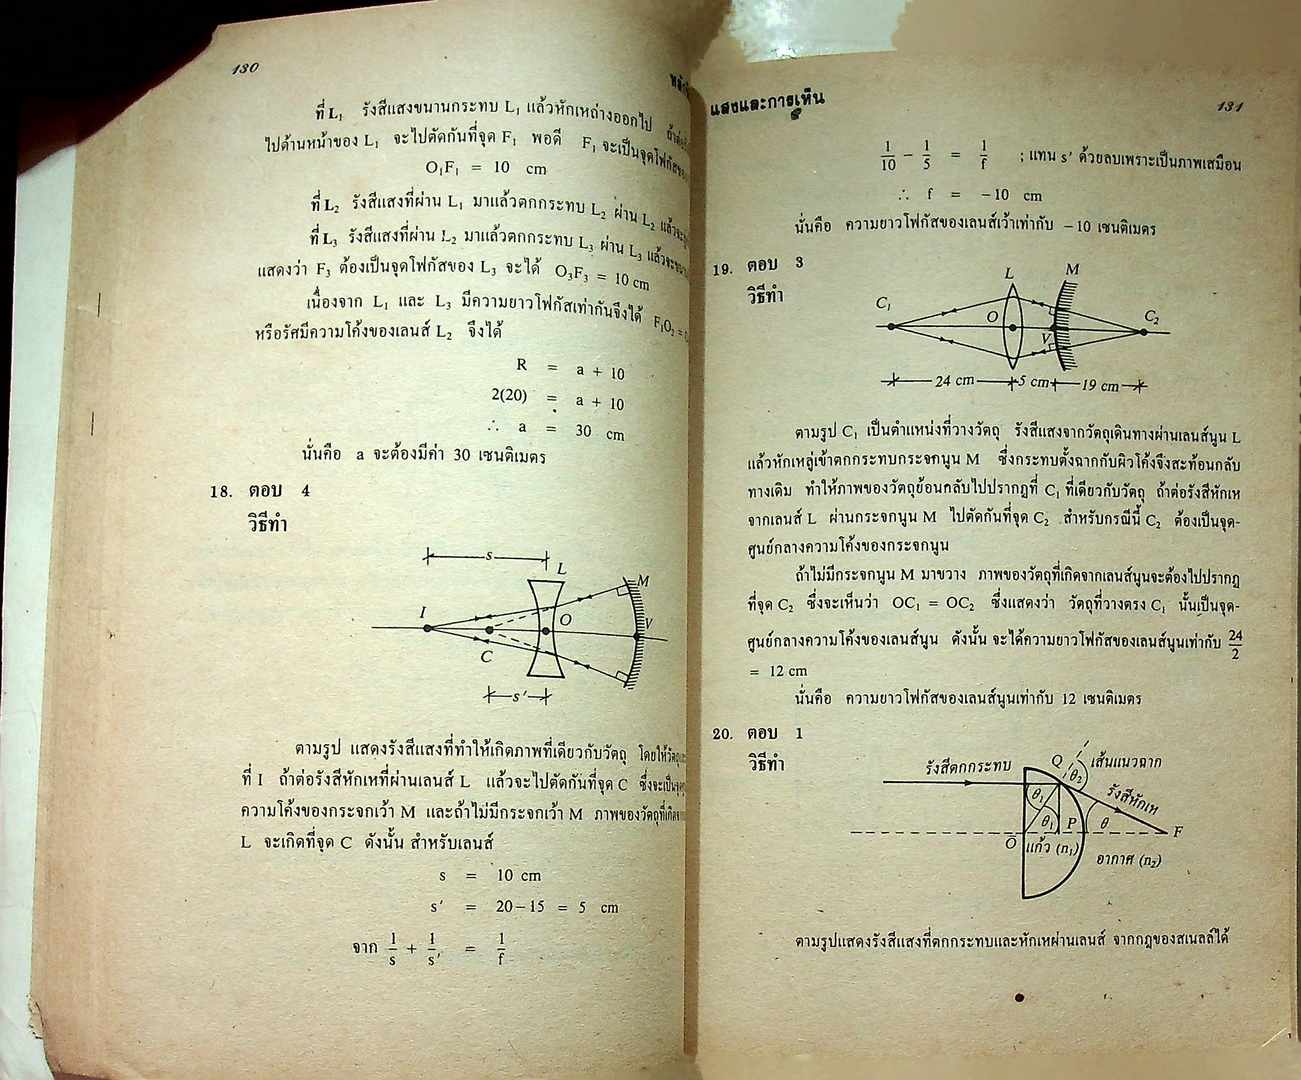 130
ที่ L₁ รังสีแสงขนานกระทบ L₁ แล้วหักเหถ่างออกไป
ไปด้านหน้าของ L₁ จะไปตัดกันที่จุด F₁ พอดี F₁ จะเป็นจุดโฟกัส
O₁F₁ = 10 cm
ที่ L₂ รังสีแสงที่ผ่าน L₁ มาแล้วตกกระทบ L₂ ผ่าน L₂
ที่ L₃ รังสีแสงที่ผ่าน L₂ มาแล้วตกกระทบ L₃ ผ่าน L₃
แสดงว่า F₃ ต้องเป็นจุดโฟกัสของ L₃ จะได้ O₃F₃ = 10 cm
เนื่องจาก L₁ และ L₃ มีความยาวโฟกัสเท่ากันจึงได้ F₁O₂ =
หรือรัศมีความโค้งของเลนส์ L₂ จึงได้
R = a + 10
2(20) = a + 10
∴ a = 30 cm
นั่นคือ a จะต้องมีค่า 30 เซนติเมตร
18. ตอบ 4
วิธีทำ
s
L
M
I
O
V
C
s'
ตามรูป แสดงรังสีแสงที่ทำให้เกิดภาพที่เดียวกับวัตถุ
ที่ I ถ้าต่อรังสีหักเหที่ผ่านเลนส์ L แล้วจะไปตัดกันที่จุด C
ความโค้งของกระจกเว้า M และถ้าไม่มีกระจกเว้า M ภาพของวัตถุที่เกิด
L จะเกิดที่จุด C ดังนั้น สำหรับเลนส์
s = 10 cm
s' = 20 – 15 = 5 cm
จาก 1/s + 1/s' = 1/f
แสงและการเห็น
131
1/10 – 1/5 = 1/f ; แทน s' ด้วยลบเพราะเป็นภาพเสมือน
∴ f = –10 cm
นั่นคือ ความยาวโฟกัสของเลนส์เว้าเท่ากับ –10 เซนติเมตร
19. ตอบ 3
วิธีทำ
L
M
C₁
O
V
C₂
24 cm
5 cm
19 cm
ตามรูป C₁ เป็นตำแหน่งที่วางวัตถุ รังสีแสงจากวัตถุเดินทางผ่านเลนส์นูน L
แล้วหักเหลู่เข้าตกกระทบกระจกนูน M ซึ่งกระทบตั้งฉากกับผิวโค้งจึงสะท้อนกลับ
ทางเดิม ทำให้ภาพของวัตถุย้อนกลับไปปรากฏที่ C₁ ที่เดียวกับวัตถุ ถ้าต่อรังสีหักเห
จากเลนส์ L ผ่านกระจกนูน M ไปตัดกันที่จุด C₂ สำหรับกรณีนี้ C₂ ต้องเป็นจุด-
ศูนย์กลางความโค้งของกระจกนูน
ถ้าไม่มีกระจกนูน M มาขวาง ภาพของวัตถุที่เกิดจากเลนส์นูนจะต้องไปปรากฏ
ที่จุด C₂ ซึ่งจะเห็นว่า OC₁ = OC₂ ซึ่งแสดงว่า วัตถุที่วางตรง C₁ นั้นเป็นจุด-
ศูนย์กลางความโค้งของเลนส์นูน ดังนั้น จะได้ความยาวโฟกัสของเลนส์นูนเท่ากับ 24/2
= 12 cm
นั่นคือ ความยาวโฟกัสของเลนส์นูนเท่ากับ 12 เซนติเมตร
20. ตอบ 1
วิธีทำ
รังสีตกกระทบ
Q
θ₂
เส้นแนวฉาก
รังสีหักเห
θ₁
θ₁
P
θ
F
O
แก้ว (n₁)
อากาศ (n₂)
ตามรูปแสดงรังสีแสงที่ตกกระทบและหักเหผ่านเลนส์ จากกฎของสเนลล์ได้